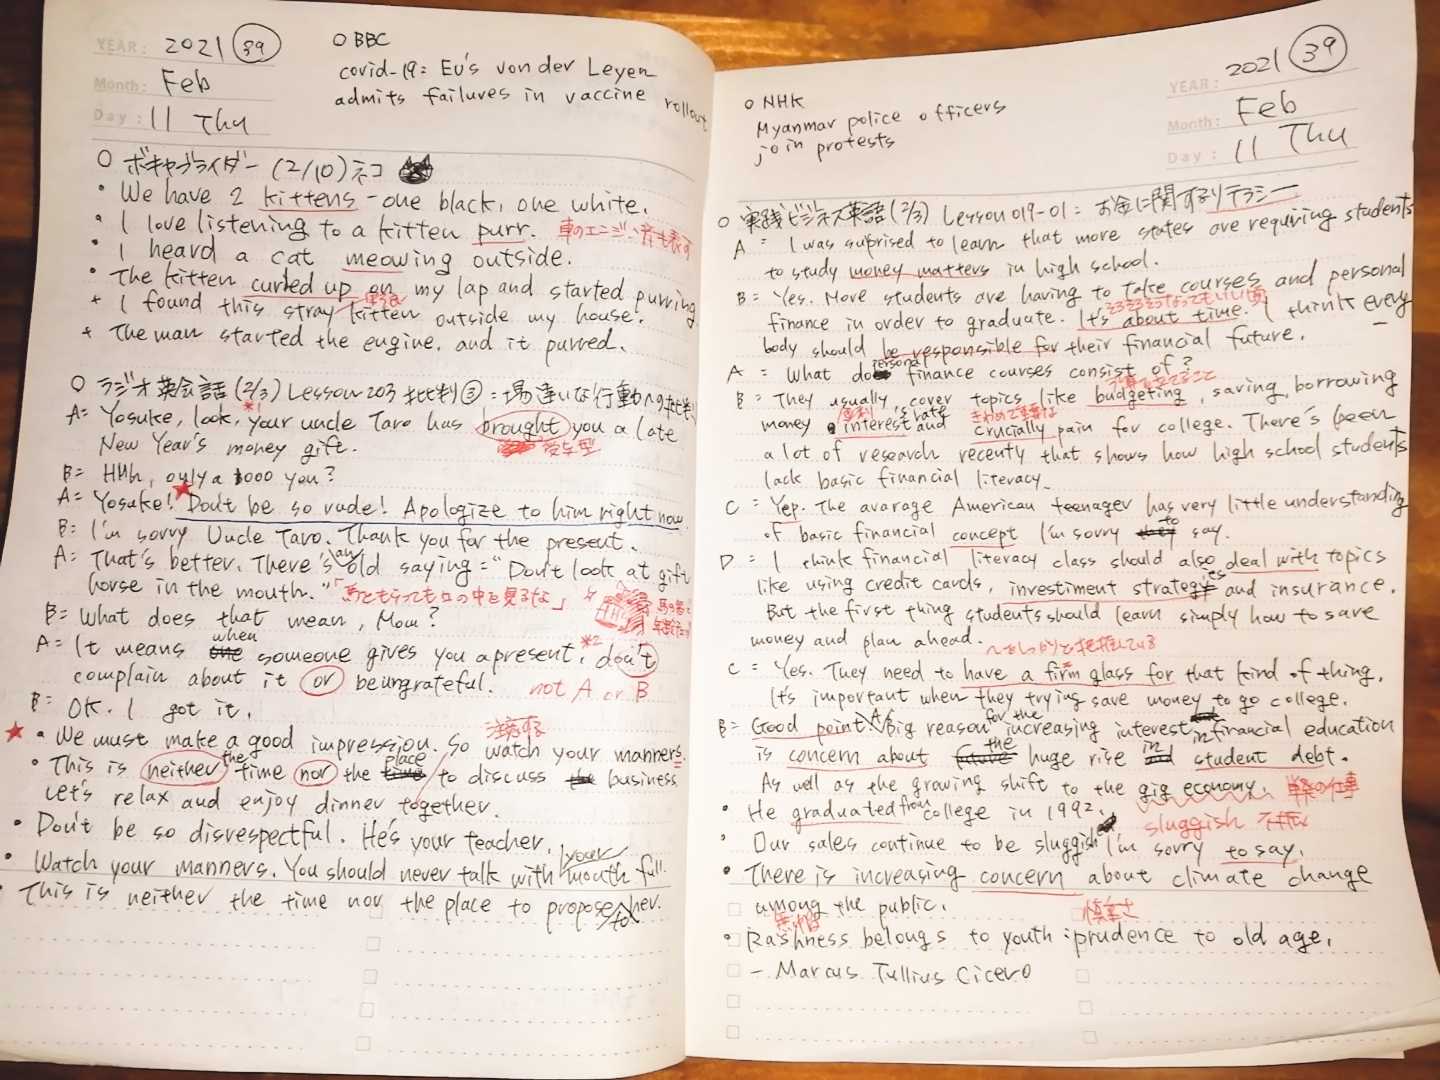 YEAR: 2021 39
Month: Feb
Day: 11 Thu
○ BBC
covid-19: EU's von der Leyen
admits failures in vaccine rollout
○ ボキャブライダー (2/10) ネコ
・We have 2 kittens - one black, one white.
・I love listening to a kitten purr. 車のエンジン音も表す
・I heard a cat meowing outside.
・The kitten curled up on my lap and started purring
・I found this stray kitten outside my house.
・The man started the engine, and it purred.
○ ラジオ英会話 (2/3) Lesson 203 批判③ : 場違いな行動への批判
A= Yosuke, look, your uncle Taro has brought you a late
*1
New Year's money gift.
授与型
B= Huh, only a 1000 yen?
A= Yosuke! Don't be so rude! Apologize to him right now.
B= I'm sorry Uncle Taro. Thank you for the present.
A= That's better. There's an old saying = "Don't look at gift
horse in the mouth." 「馬をもらっても口の中を見るな」
B= What does that mean, Mom?
A= It means when someone gives you a present, *2 don't
complain about it or be ungrateful. not A or B
B= OK. I got it.
注意する
・We must make a good impression. So watch your manners.
・This is neither the time nor the place to discuss business
Let's relax and enjoy dinner together.
・Don't be so disrespectful. He's your teacher.
・Watch your manners. You should never talk with your mouth full.
・This is neither the time nor the place to propose to her.
YEAR: 2021 39
Month: Feb
Day: 11 Thu
○ NHK
Myanmar police officers
join protests
○ 実践ビジネス英語 (2/3) Lesson 019-01 : お金に関するリテラシー
A = I was suprised to learn that more states are requiring students
to study money matters in high school.
B = Yes. More students are having to take courses and personal
finance in order to graduate. It's about time. I think every
body should be responsible for their financial future.
A = What do personal finance courses consist of?
B = They usually cover topics like budgeting, saving, borrowing
money interest rate and crucially pain for college. There's been
きわめて重要な
a lot of research recenty that shows how high school students
lack basic financial literacy.
C = Yep. The avarage American teenager has very little understanding
of basic financial concept I'm sorry to say.
D = I think financial literacy class should also deal with topics
like using credit cards, investiment strategies and insurance.
But the first thing students should learn simply how to save
money and plan ahead.
〜をしっかりと把握している
C = Yes. They need to have a firm glass for that kind of thing.
It's important when they trying save money to go college.
B = Good point. A big reason for the increasing interest in financial education
is concern about the huge rise in student debt.
As well as the growing shift to the gig economy. 単発の仕事
・He graduated from college in 1992.
sluggish 不振な
・Our sales continue to be sluggish I'm sorry to say.
・There is increasing concern about climate change
among the public.
無分別 慎重さ
・Rashness belongs to youth : prudence to old age.
- Marcus Tullius Cicero